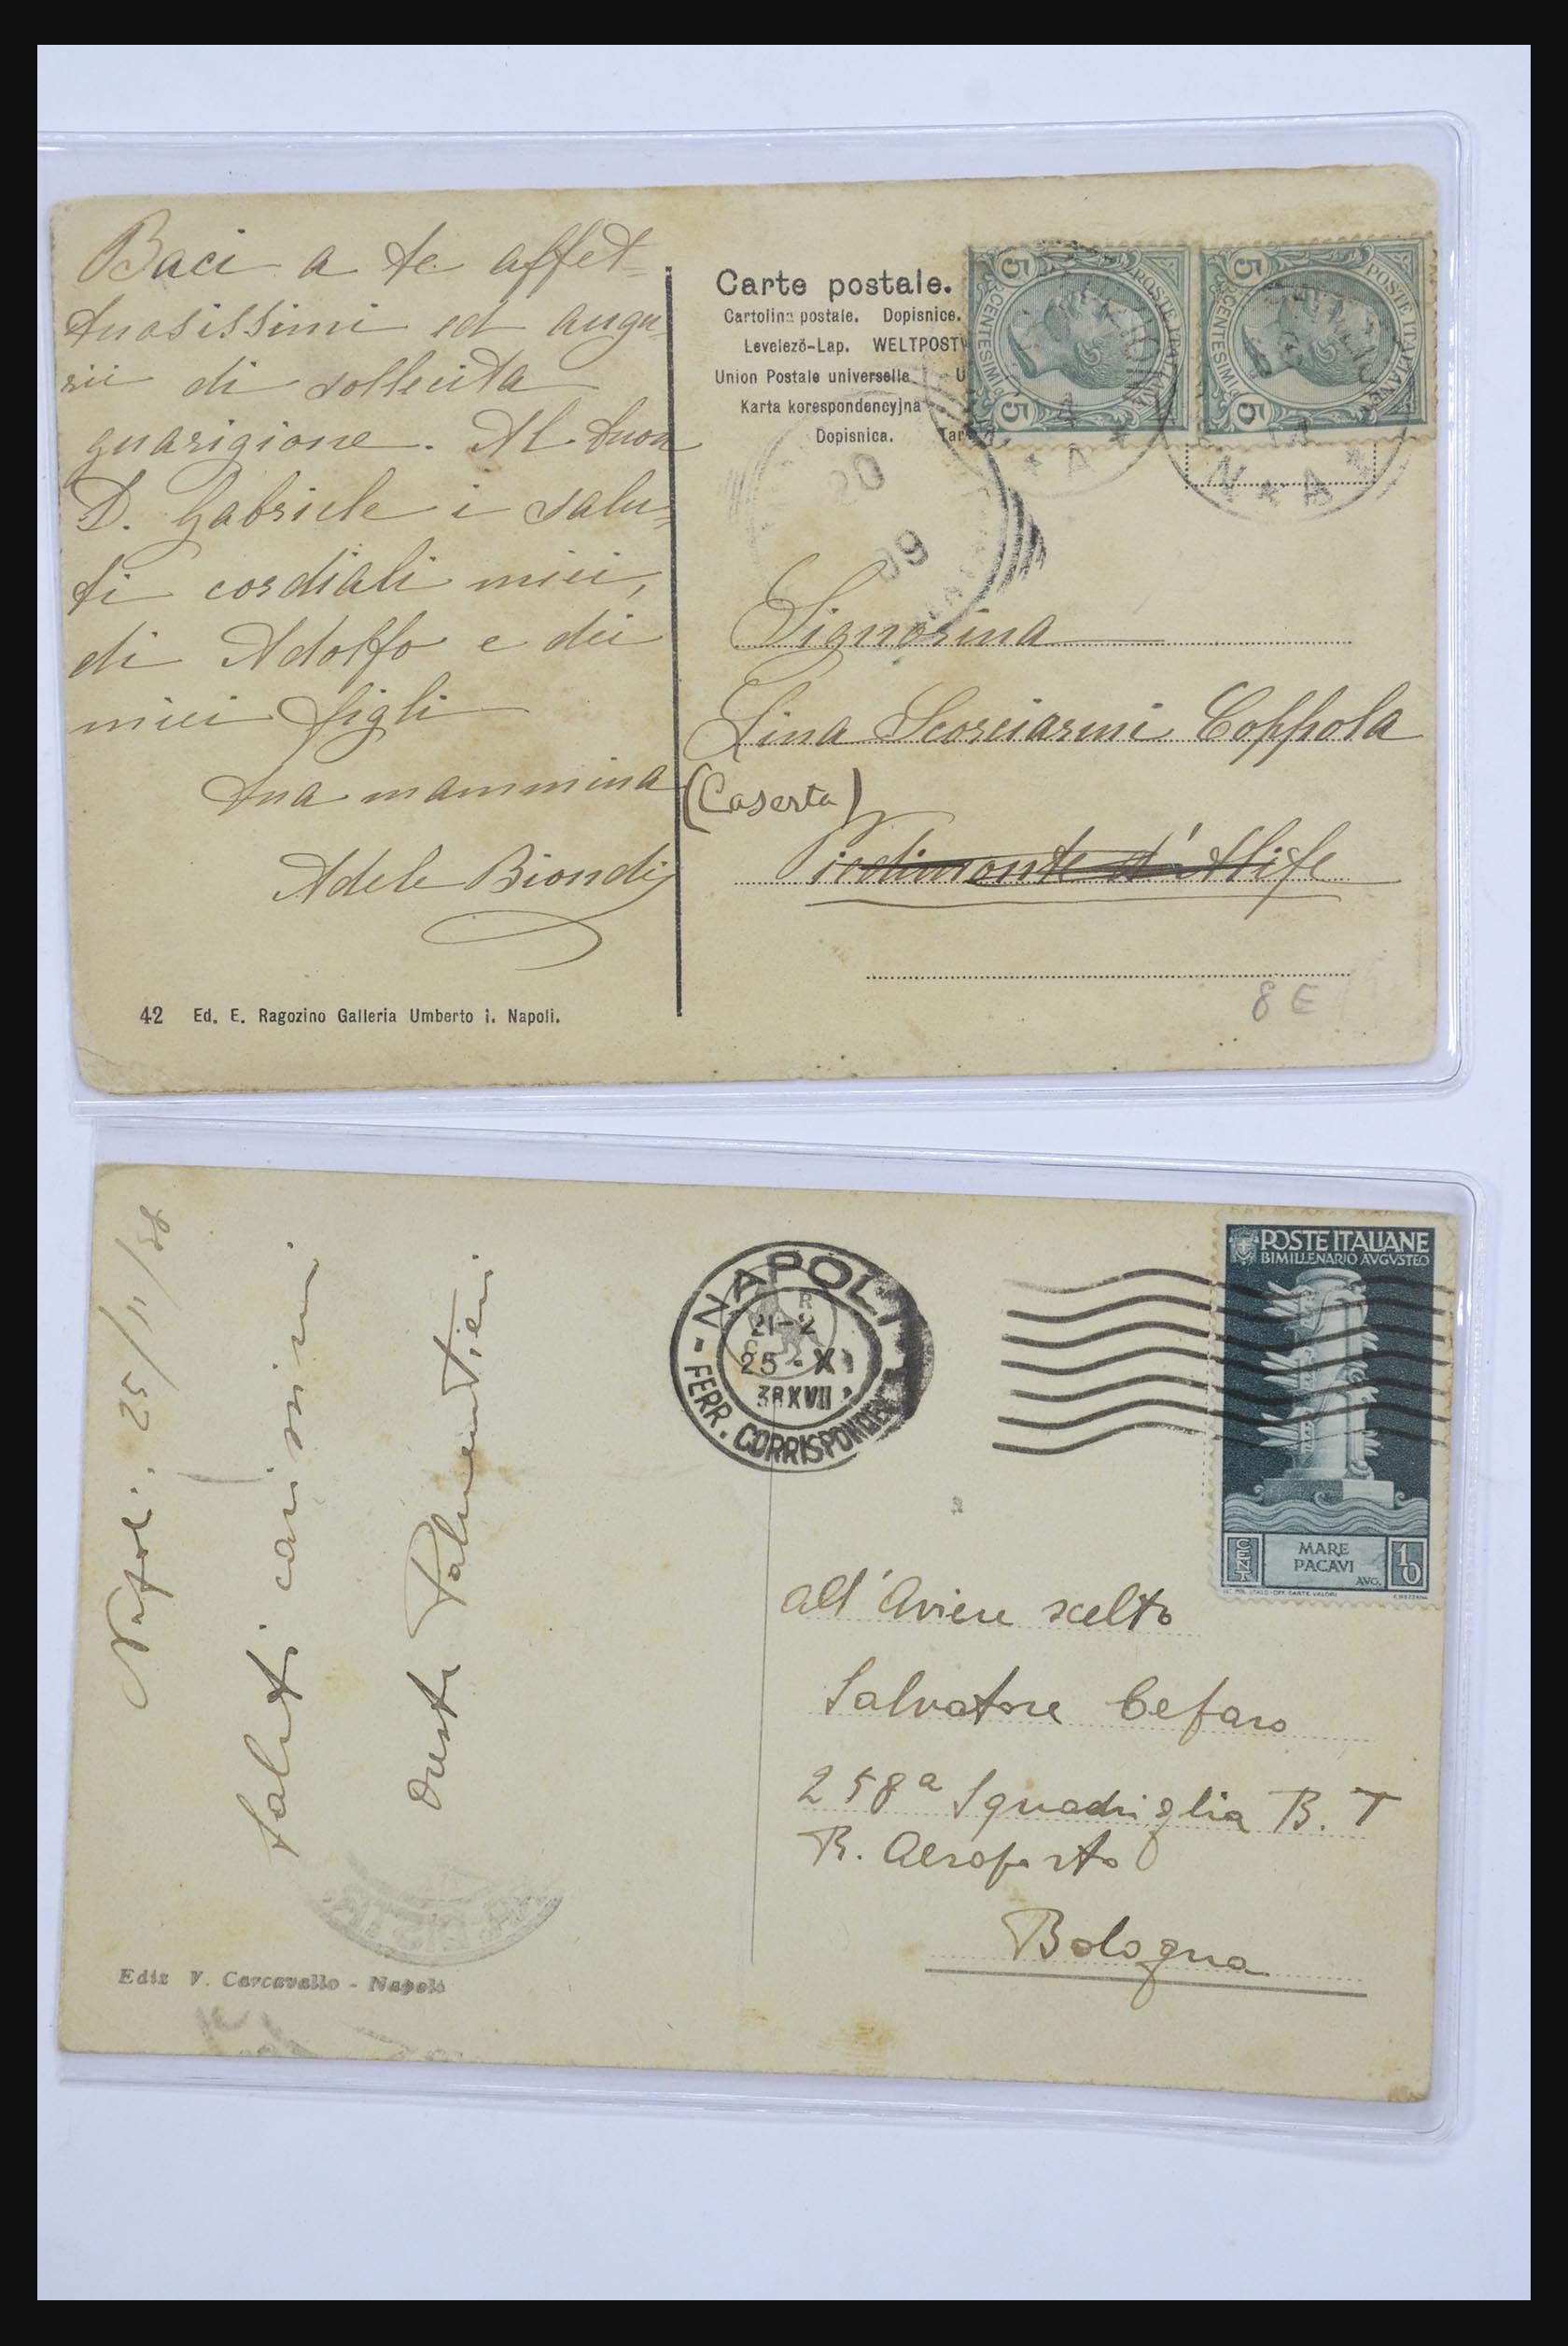 Baci a te affet=
tuosissimi ed augu=
rii di sollecita
guarigione. Al tuon
D. Gabriele i salu=
ti cordiali miei,
di Adolfo e dei
miei figli
tua mammina
Adele Biondi
42 Ed. E. Ragozino Galleria Umberto i. Napoli.
Carte postale.
Cartolina postale. Dopisnice.
Levelező-Lap. WELTPOSTV
Union Postale universelle. U
Karta korespondencyjna
Dopisnica. Tar
POSTE ITALIANE
CENTESIMI
5
5
POSTE ITALIANE
CENTESIMI
5
5
20
09
Signorina
Lina Scorciarini Coppola
(Caserta)
Piedimonte d'Alife
8 E
Napoli. 25/11/38
Saluti carissimi
Oreste Palmentieri
Ediz V. Carcavallo - Napoli
NAPOLI
21-2
25 · XI
38 XVII
FERR. CORRISPONDENZE
POSTE ITALIANE
BIMILLENARIO AVGVSTEO
CENT
MARE
PACAVI
AVG.
10
all'Aviere scelto
Salvatore Cefaro
258ª Squadriglia B. T
R. Aeroporto
Bologna